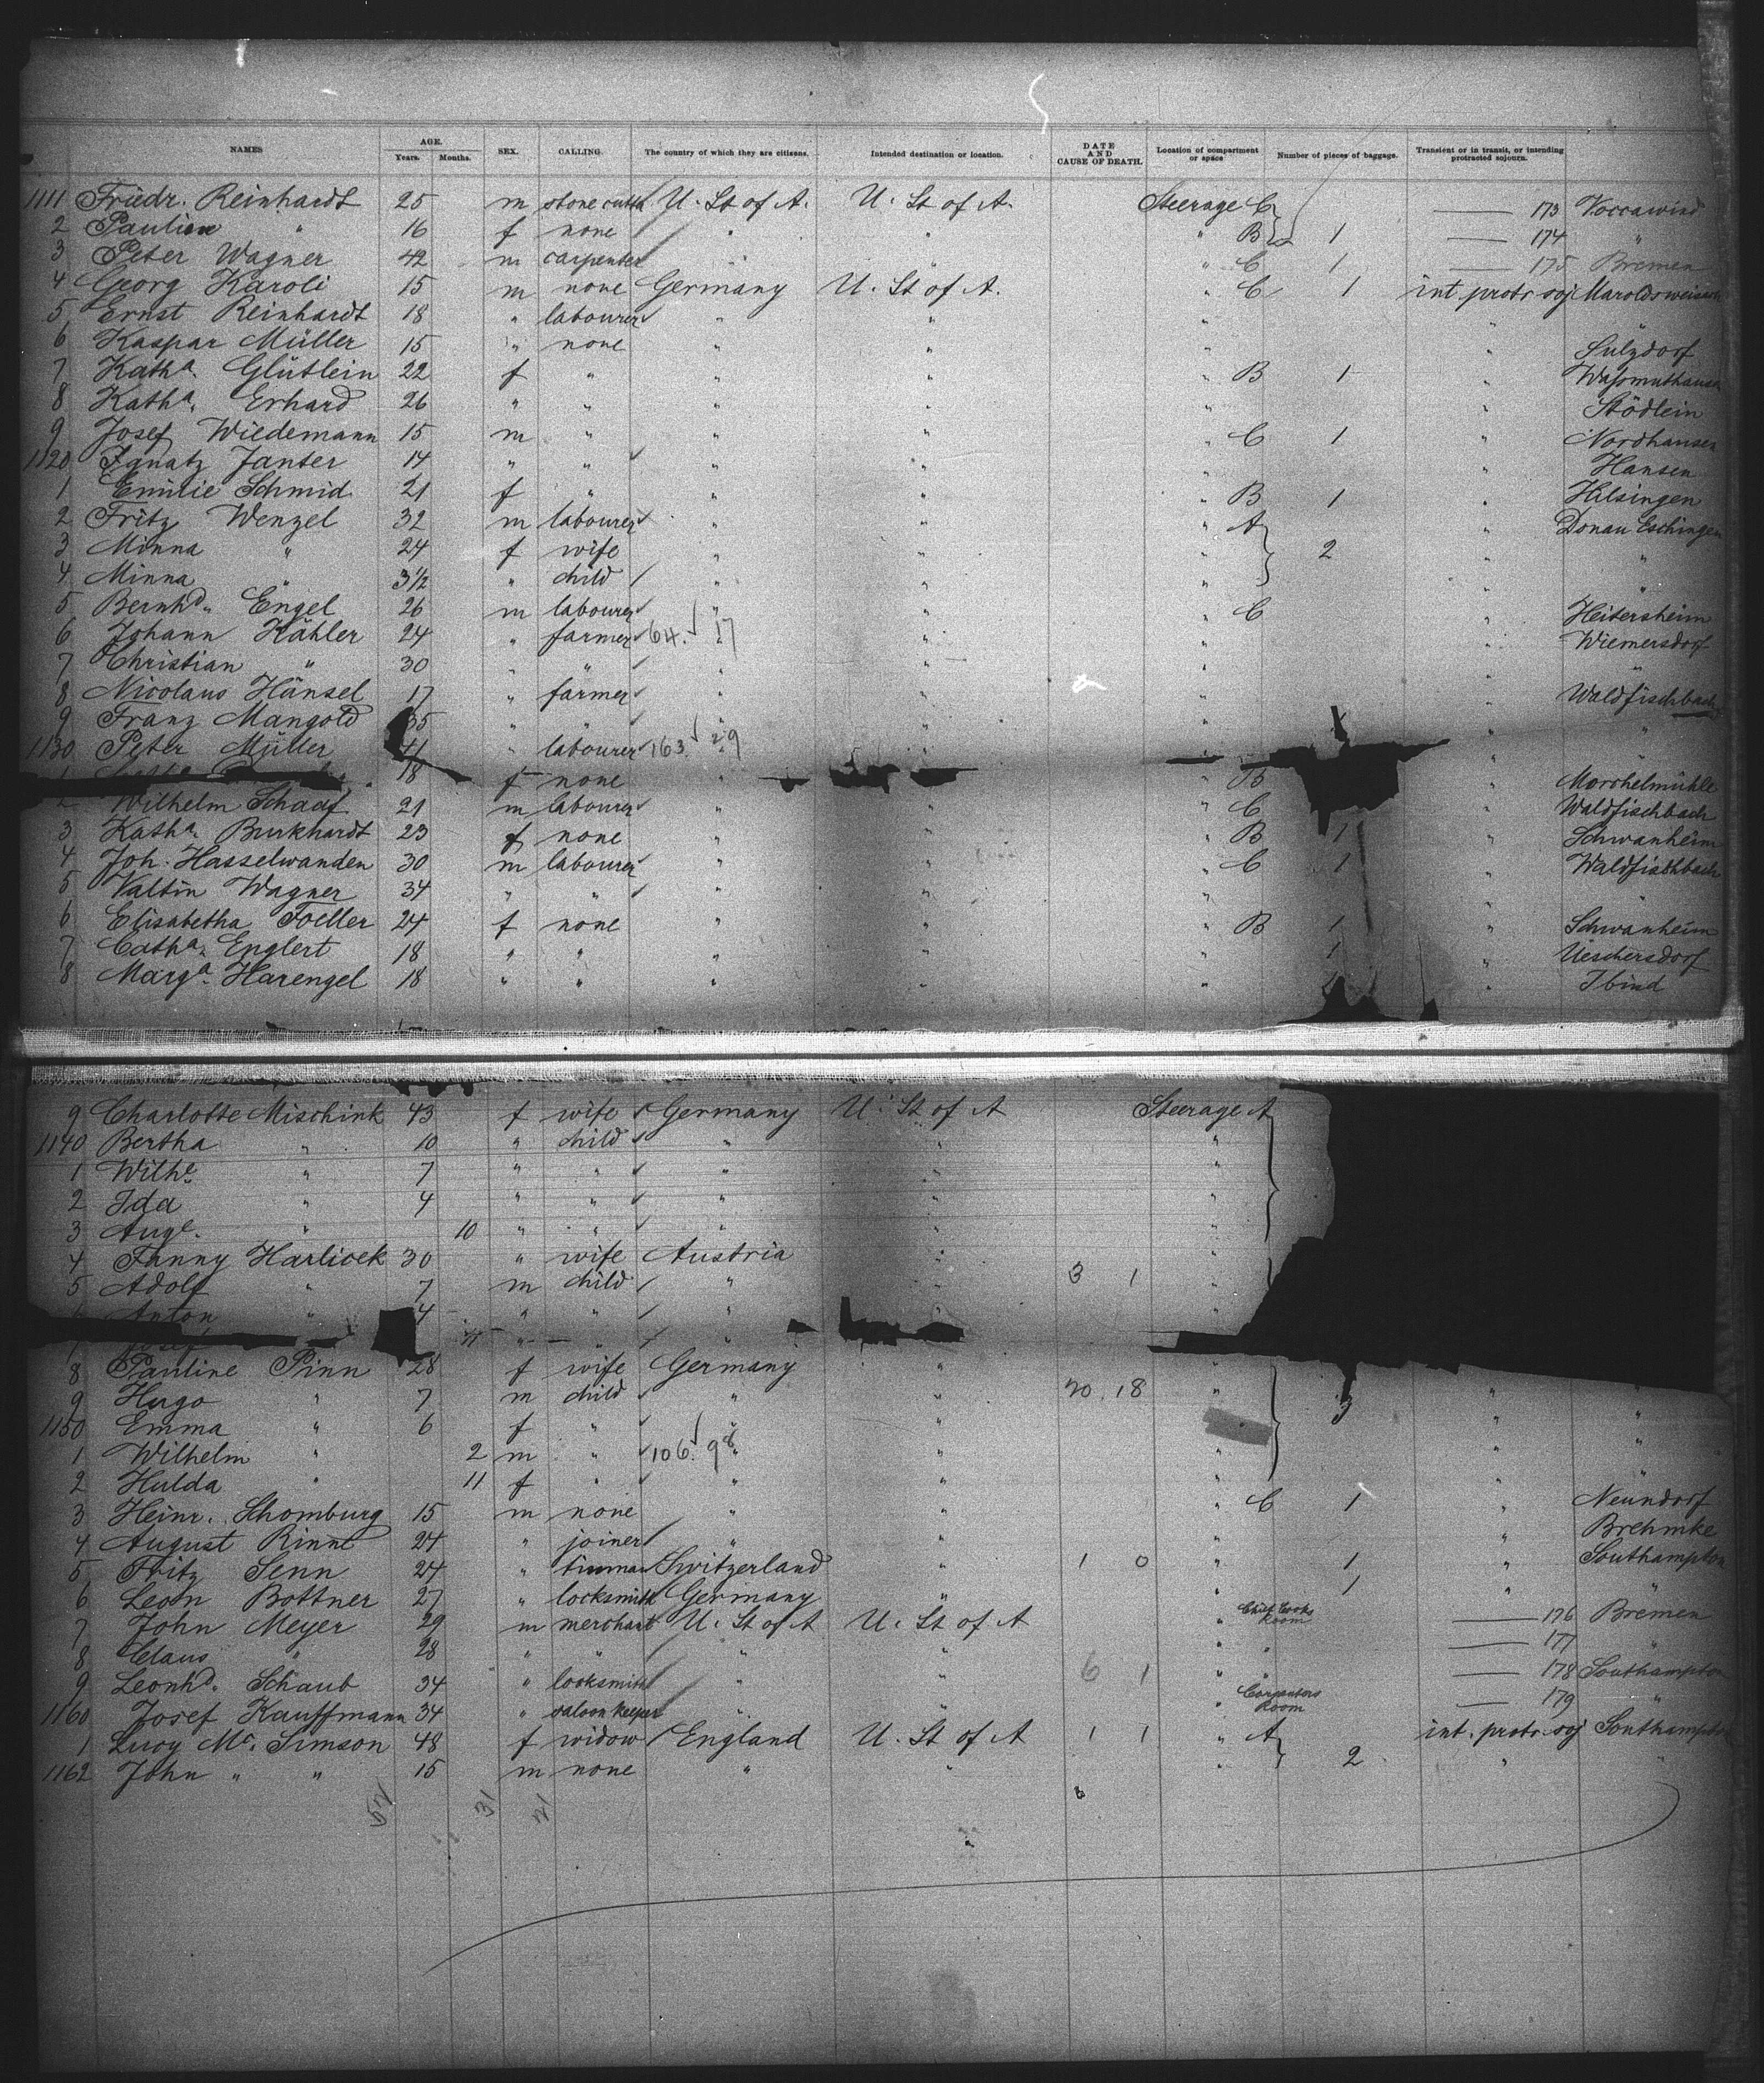 NAMES AGE. Years. Months. SEX. CALLING. The country of which they are citizens. Intended destination or location. DATE AND CAUSE OF DEATH. Location of compartment or space Number of pieces of baggage. Transient or in transit, or intending protracted sojourn.
1111 Friedr. Reinhardt 25 m stone cutter U. St of A. U. St of A. Steerage C 173 Voccawind
2 Pauline " 16 f none " " " B 1 174 "
3 Peter Wagner 42 m carpenter " " " C 1 175 Bremen
4 Georg Karoli 15 m none Germany U. St of A. " C 1 int. protr. soj Maroldsweisach
5 Ernst Reinhardt 18 " labourer " " " " "
6 Kaspar Müller 15 " none " " " " Sulzdorf
7 Katha. Glütlein 22 f " " " " B 1 "
8 Katha. Erhard 26 " " " " " " Stödlein
9 Josef Wiedemann 15 m " " " " C 1 " Nordhausen
1120 Ignatz Janser 14 " " " " " " Hansen
1 Emilie Schmid 21 f " " " " B 1 " Hilsingen
2 Fritz Wenzel 32 m labourer " " " A " Donau Eschingen
3 Minna " 24 f wife " " " 2 " "
4 Minna " 3½ " child " " " " "
5 Bernhd. Engel 26 m labourer " " " C " Heitersheim
6 Johann Kähler 24 " farmer 64. 17 " " " Wiemersdorf
7 Christian " 30 " " " " " " "
8 Nicolaus Hänsel 17 " farmer " " " " Waldfischbach
9 Franz Mangold 35 " " " " " " "
1130 Peter Müller 41 " labourer 163. 29 " " " "
18 f none " " B " Morchelmühle
2 Wilhelm Schaaf 21 m labourer " " " C " Waldfischbach
3 Katha. Burkhardt 23 f none " " " B 1 " Schwanheim
4 Joh. Hasselwanden 30 m labourer " " " C 1 " Waldfischbach
5 Valtin Wagner 34 " " " " " " "
6 Elisabetha Foeller 24 f none " " " B 1 " Schwanheim
7 Catha. Englert 18 " " " " " 1 " Ueschersdorf
8 Marga. Harengel 18 " " " " " " Ibind
9 Charlotte Mischink 43 f wife Germany U. St of A Steerage A
1140 Bertha " 10 " child " " "
1 Wilhe. " 7 " " " " "
2 Ida " 4 " " " " "
3 Auge. " 10 " " " " "
4 Fanny Harlicek 30 " wife Austria " "
5 Adolf " 7 m child " " 3 1 "
6 Anton " 4 " " " "
7 Josef " " "
8 Pauline Pinn 28 f wife Germany " "
9 Hugo " 7 m child " " 20. 18 " 3 " "
1150 Emma " 6 f " " " " "
1 Wilhelm " 2 m " 106. 98 " " " "
2 Hulda " 11 f " " " " " "
3 Heinr. Schomburg 15 m none " " " C 1 " Neundorf
4 August Rinne 24 " joiner " " " " Brehmke
5 Fritz Senn 24 " tinman Switzerland " 1 0 " 1 " Southampton
6 Leon Bottner 27 " locksmith Germany " " 1 " "
7 John Meyer 29 m merchant U. St of A U. St of A " Chief Cooks Room 176 Bremen
8 Claus " 28 " " " " " " 177 "
9 Leonhd. Schaub 34 " locksmith " " 6 1 " " 178 Southampton
1160 Josef Kauffmann 34 " saloon keeper " " " Carpenters Room 179 "
1 Lucy Mc. Simson 48 f widow England U. St of A 1 1 " A int. protr. soj Southampton
1162 John " " 15 m none " " " 2 " "
8
51 31 21